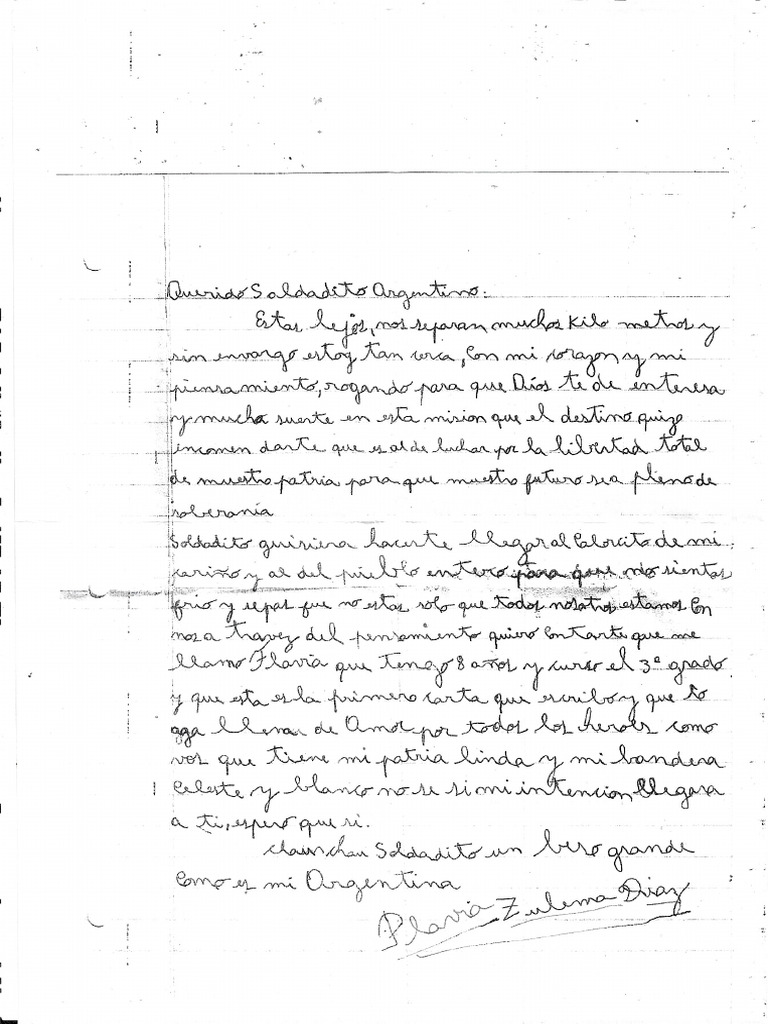 Querido Soldadito Argentino:
Estas lejos, nos separan muchos Kilo metros y
sin envargo estoy tan cerca, Con mi corazon y mi
piensamiento, rogando para que Dios te de enteresa
y mucha suerte en esta mision que el destino quizo
incomen darte que es al de luchar por la libertad total
de muestro patria para que muestro futuro sea pleno de
soberania
Soldadito quisiera hacerte llegar al Calorcito de mi
cariño y al del pueblo entero para que no sientas
frio y sepas que no estas solo que todos nosotros estamos Con
vos a travez del pensamiento quiero Contarte que me
llamo Flavia que tengo 8 años y curso el 3º grado
y que esta es la primera carta que escribo y que lo
aga llena de Amor por todos los heroes como
vos que tiene mi patria linda y mi bandera
Celeste y blanco no se si mi intencion llegara
a ti, espero que si.
chau chau Soldadito un beso grande
Como es mi Argentina
Flavia Zulema Diaz